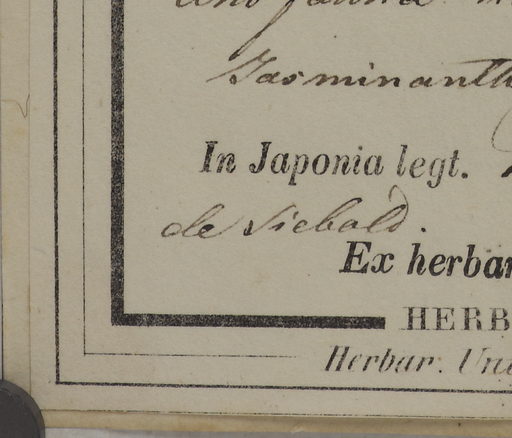 Jasminanth
In Japonia legt.
de Siebold.
Ex herbar
HERB
Herbar. Uni